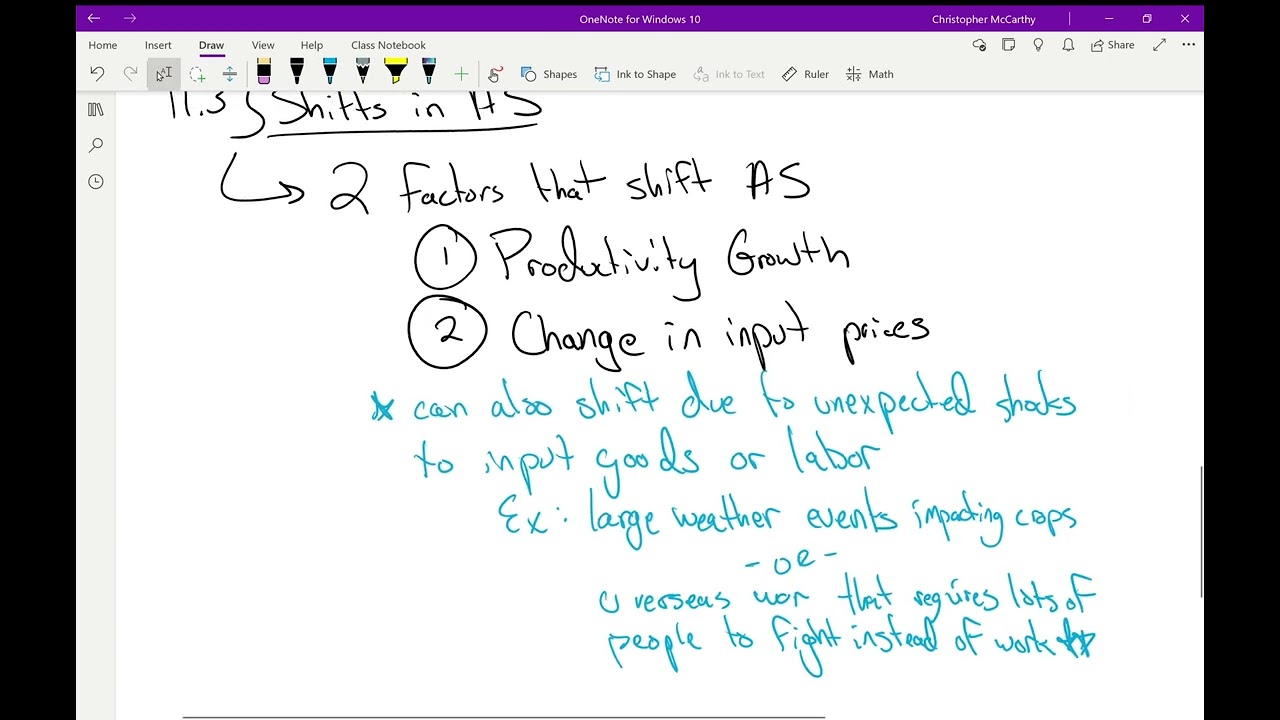 OneNote for Windows 10
Christopher McCarthy
Home Insert Draw View Help Class Notebook
Share
Shapes Ink to Shape Ink to Text Ruler Math
11.3 Shifts in AS
2 factors that shift AS
1 Productivity Growth
2 Change in input prices
* can also shift due to unexpected shocks
to input goods or labor
Ex: large weather events impacting crops
- or -
overseas war that requires lots of
people to fight instead of work *